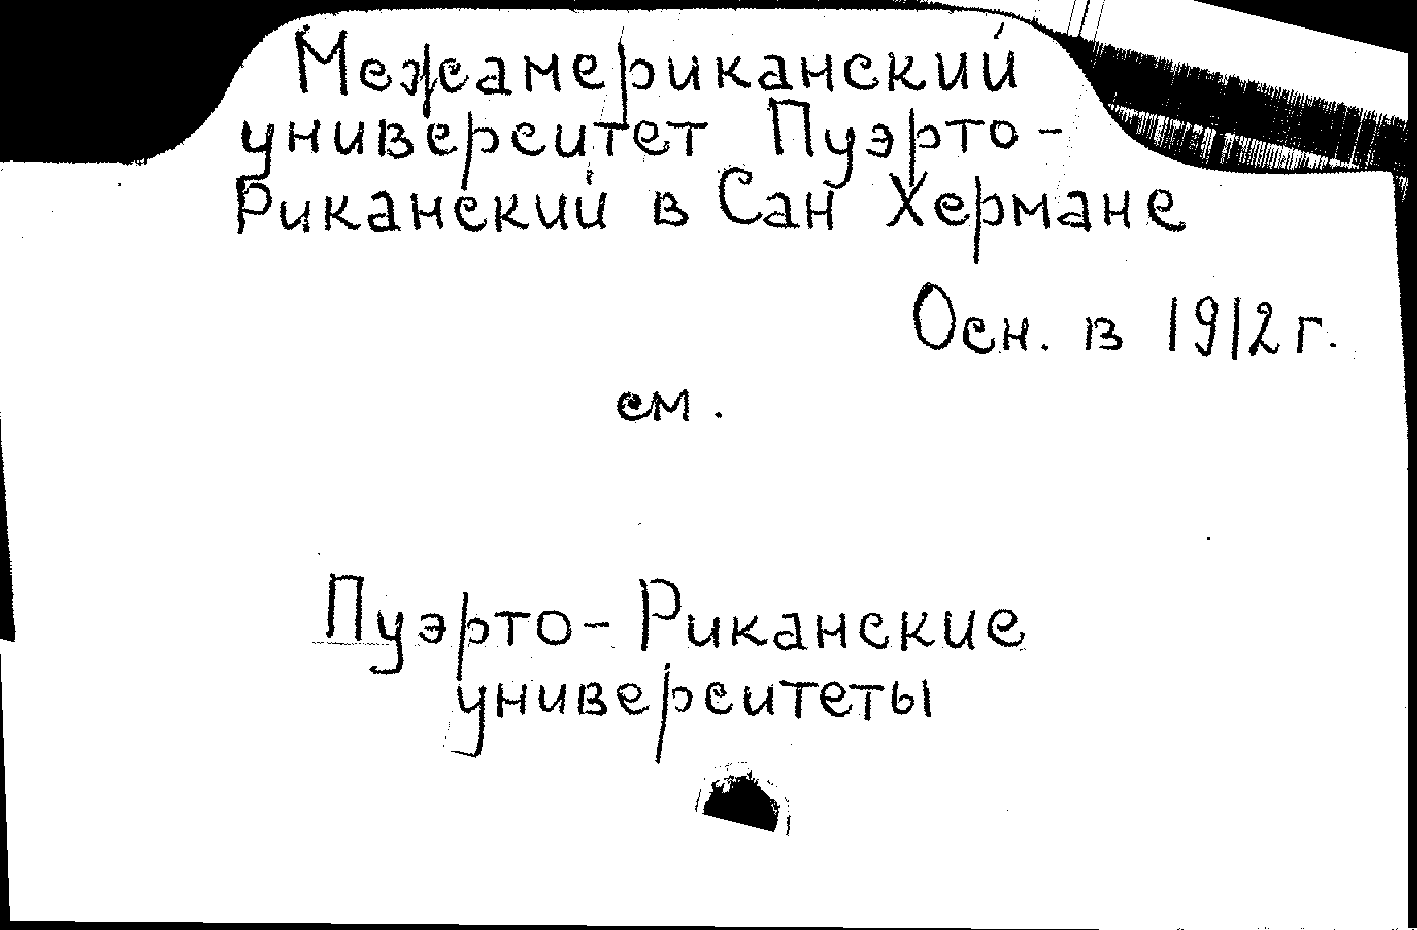 Межамериканский
университет Пуэрто-
Риканский в Сан Хермане
Осн. в 1912 г.
см.
Пуэрто-Риканские
университеты